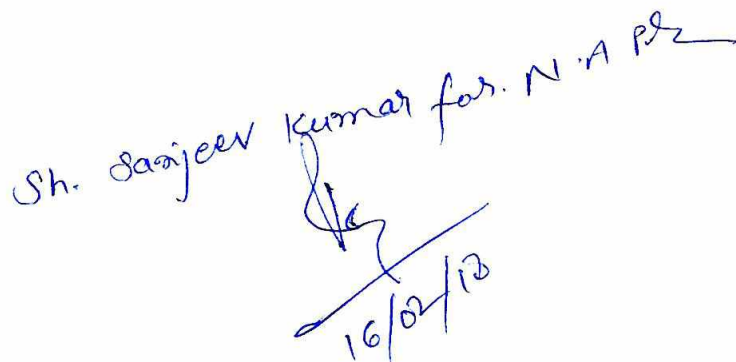 Sh. Sanjeev Kumar for. N.A Pl
16/02/18